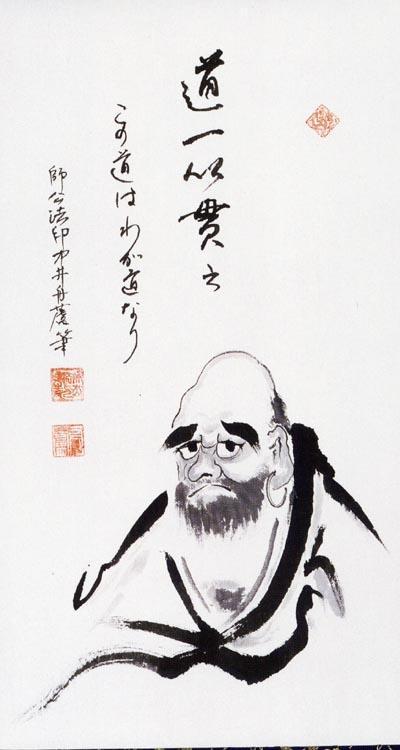 道一以貫之
この道はわが道なり
師公法印中井丹慶筆